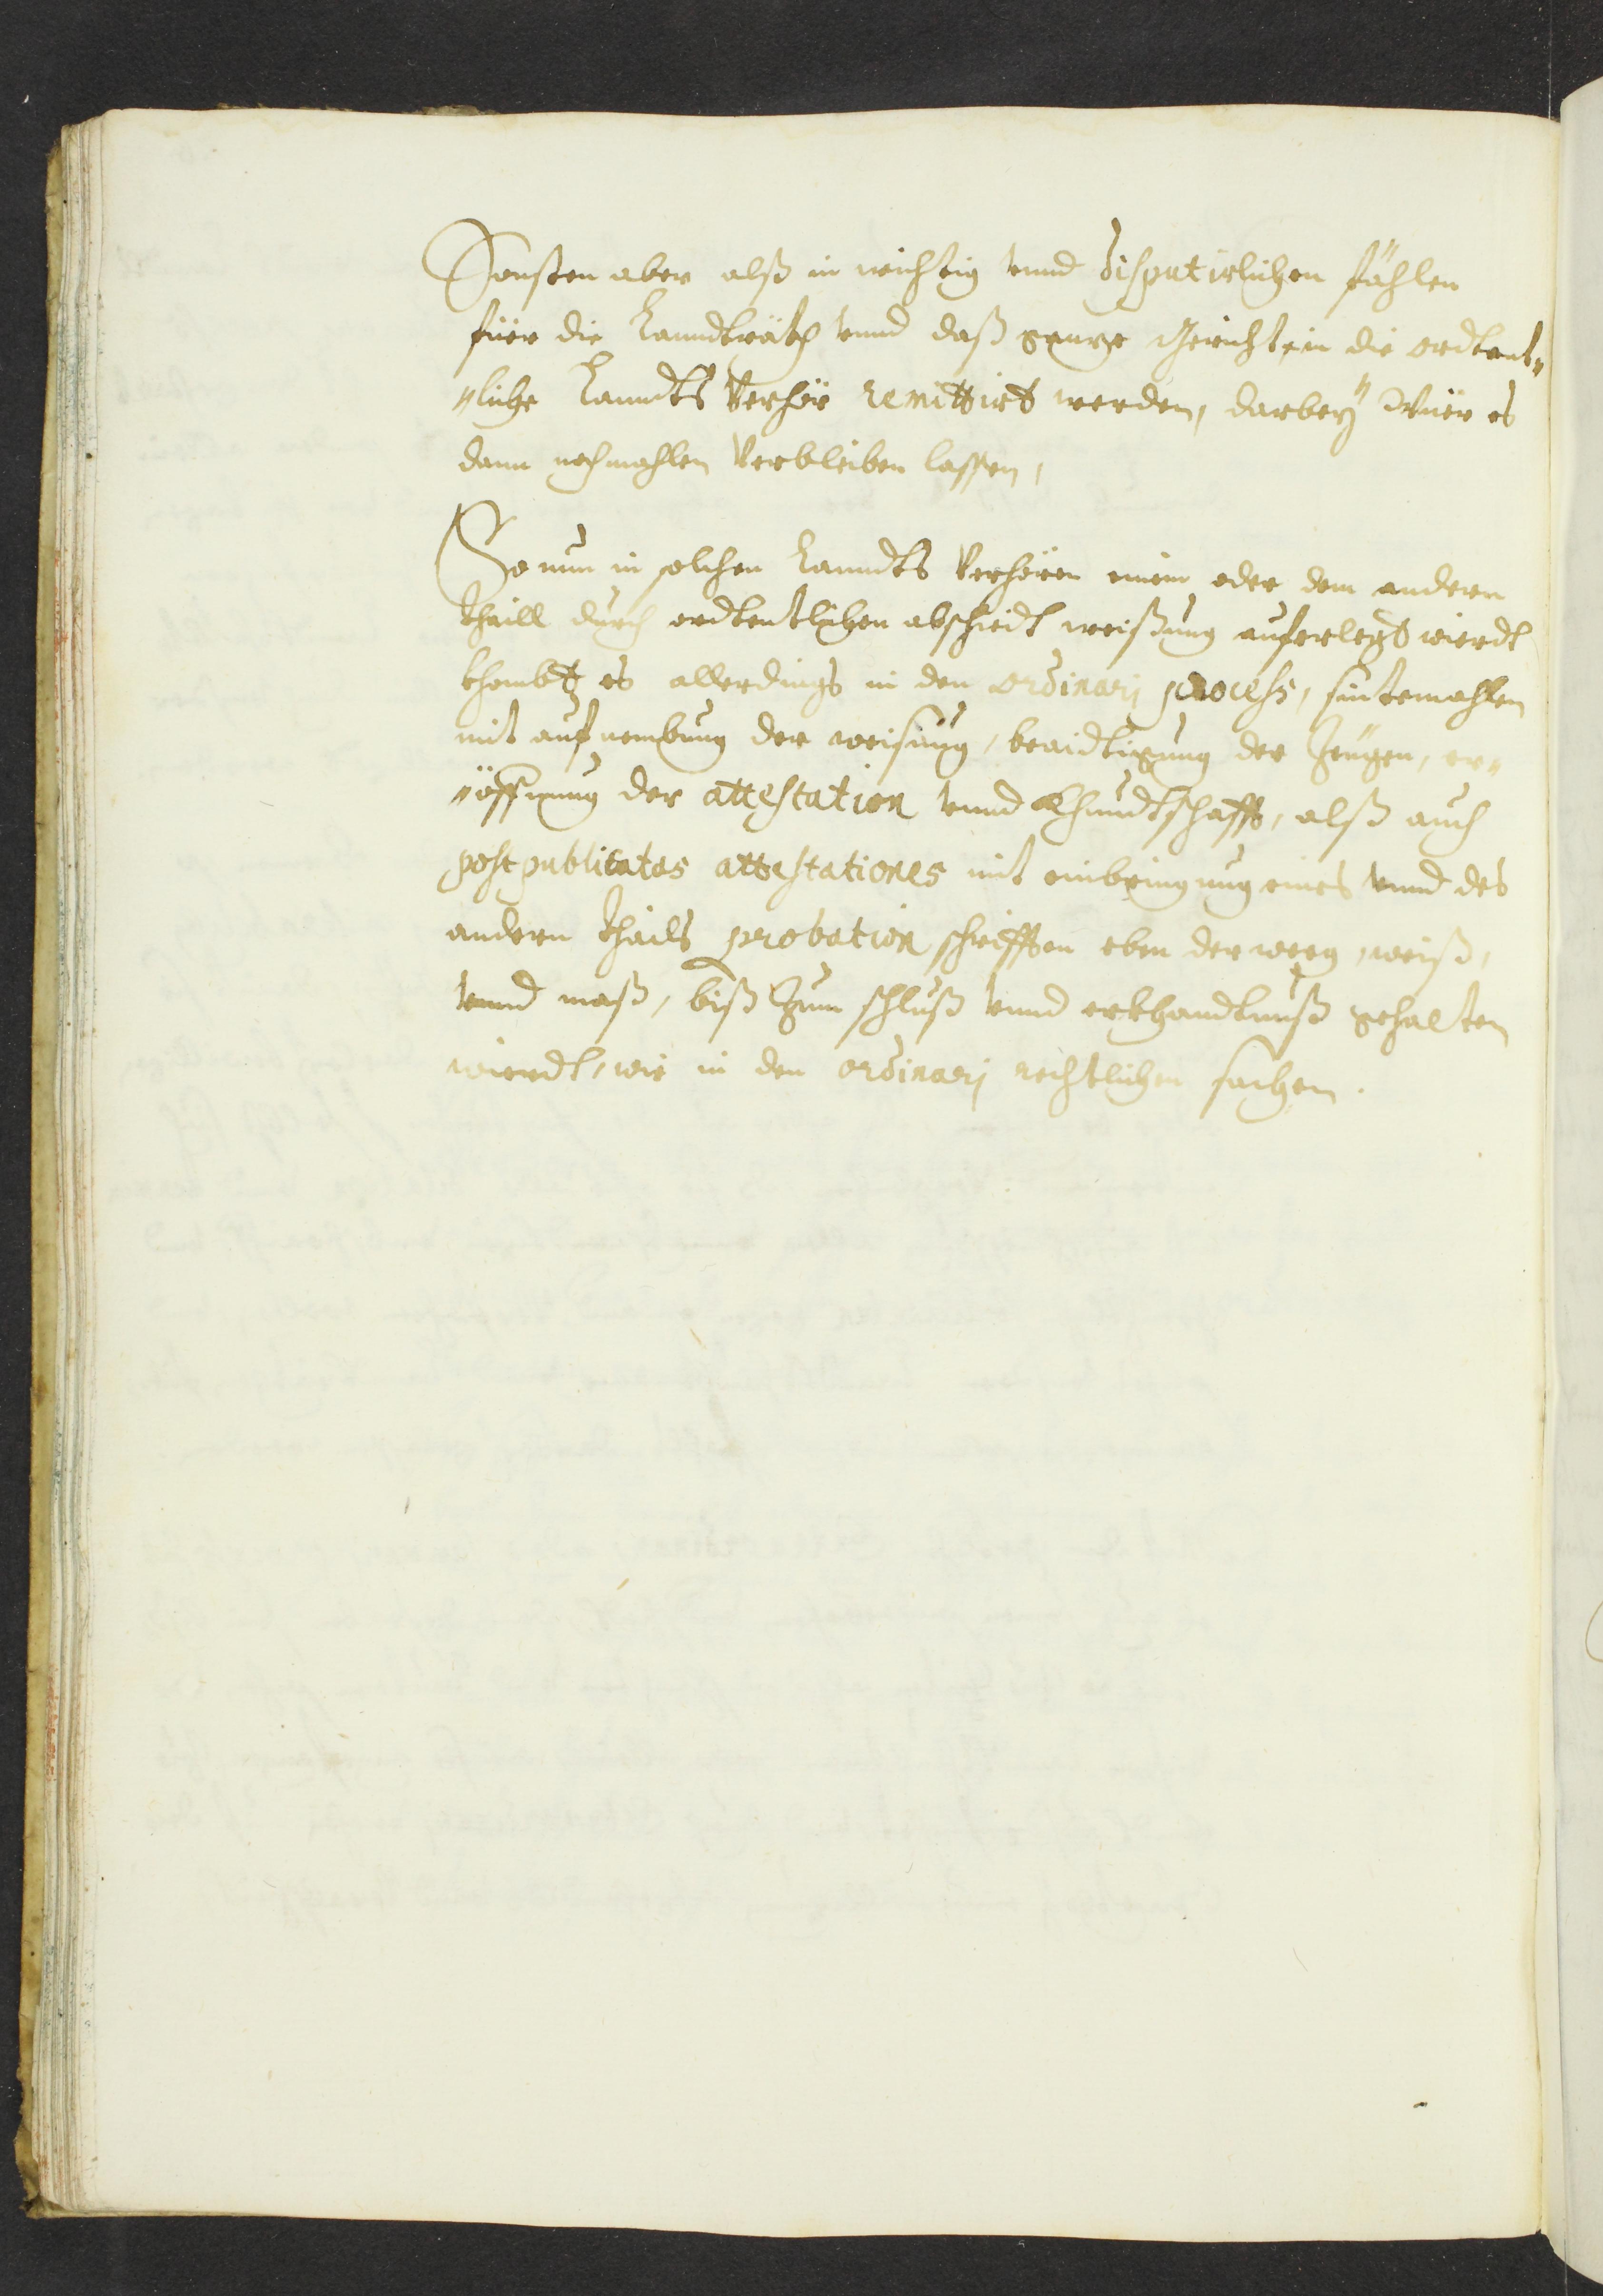 Sonsten aber alß in wichtig vnnd disputirlichen fählen
füer die Lanndträth vnnd daß ganze Gericht, in die ordtent„
„liche Lanndts Verhör remittirt werden, darbeÿ Wür es
dann nochmahlen Verbleiben lassen,
So nun in solchen Lanndts Verhören einem oder dem andern
thaill durch ordtentlichen abschiedt weißung auferlegt wierdt
khombt es allerdings in den ordinarj process, sintemahlen
mit aufnembung der weisung, beaidtigung der Zeugen, er„
„öffnung der attestation vnnd Khundtschafft, alß auch
post publicatas attestationes mit einbringung eines vnnd des
andern thails probation schrifften eben der weeg, weiß,
vnnd maß, biß Zum schluß vnnd erkhandtnuß gehalten
wierdt, wie in den ordinarj rechtlichen sachen.